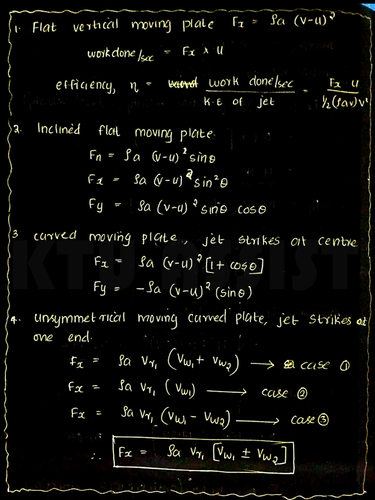 1. Flat vertical moving plate Fx = ρa (v-u)²
workdone/sec = Fx x u
efficiency, η = work done/sec / K.E of jet = Fx u / ½(ρav)v²
2. Inclined flat moving plate.
Fn = ρa (v-u)² sinθ
Fx = ρa (v-u)² sin²θ
Fy = ρa (v-u)² sinθ cosθ
3 curved moving plate, jet strikes at centre
Fx = ρa (v-u)² [1 + cosθ]
Fy = -ρa (v-u)² (sinθ)
4. unsymmetrical moving curved plate, jet strikes at
one end.
Fx = ρa Vr₁ (Vw₁ + Vw₂) → case ①
Fx = ρa Vr₁ (Vw₁) → case ②
Fx = ρa Vr₁ (Vw₁ - Vw₂) → case ③
∴ Fx = ρa Vr₁ [Vw₁ ± Vw₂]